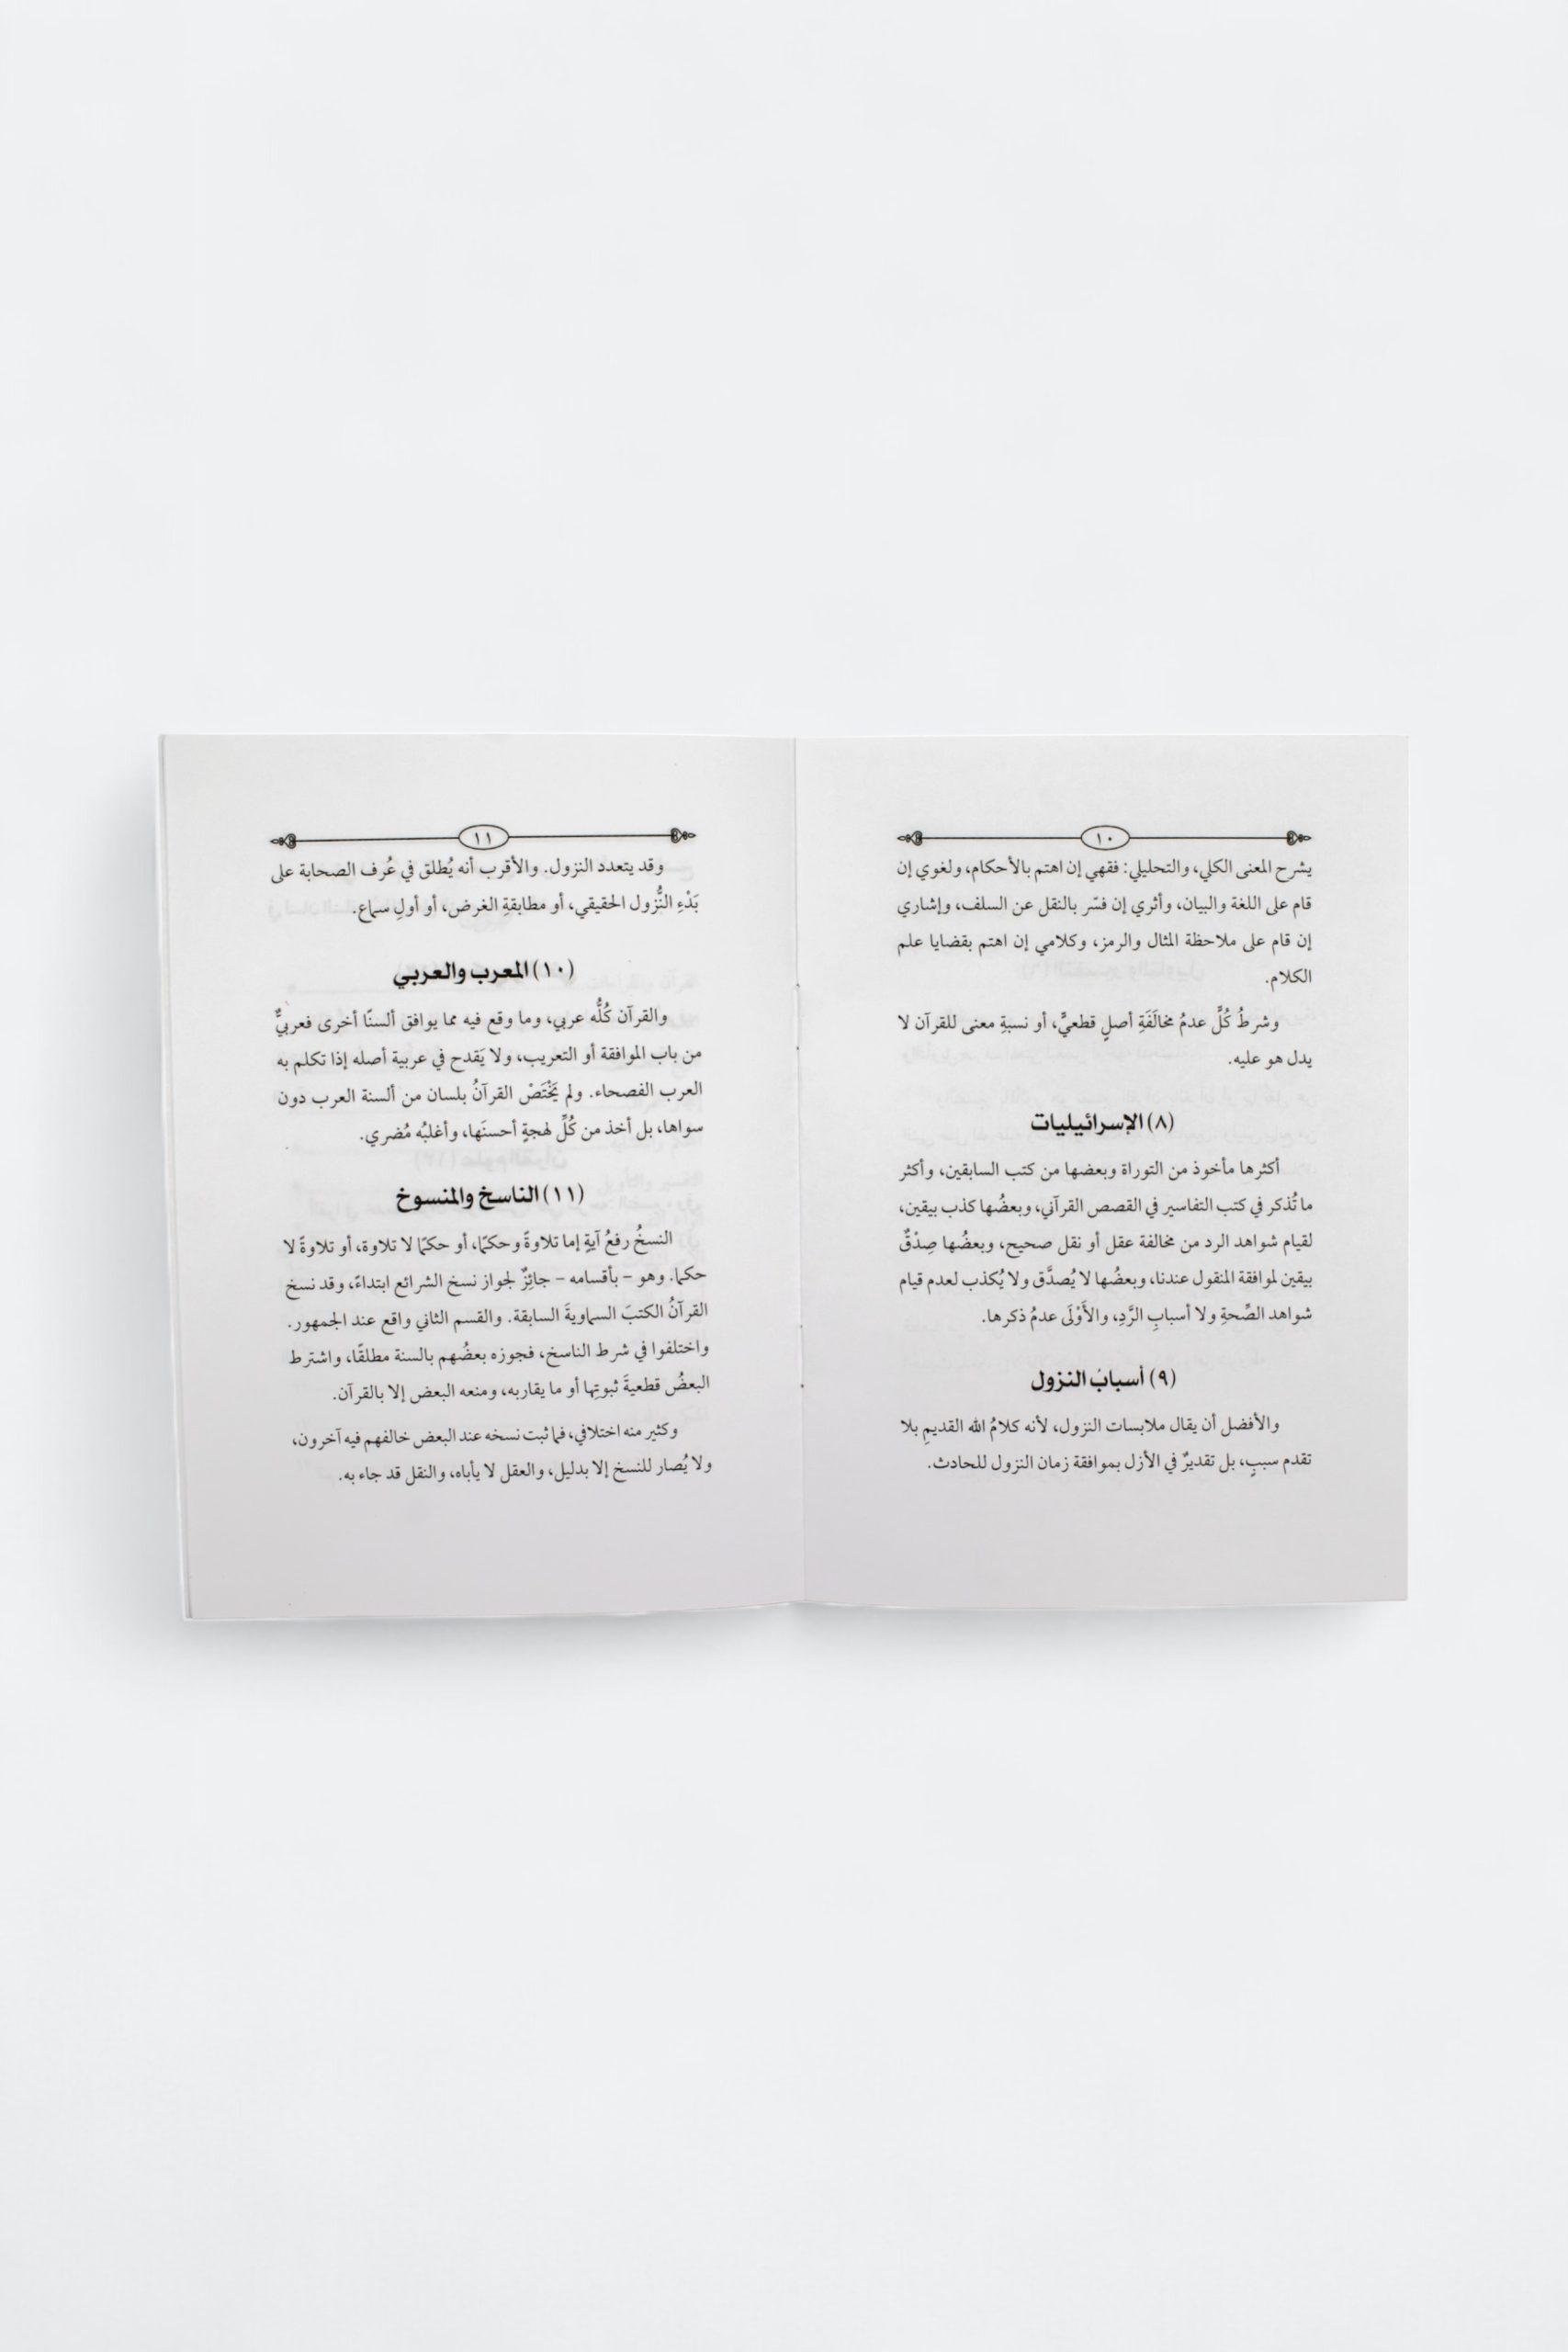 ١٠
يشرح المعنى الكلي، والتحليلي: فقهي إن اهتم بالأحكام، ولغوي إن
قام على اللغة والبيان، وأثري إن فسّر بالنقل عن السلف، وإشاري
إن قام على ملاحظة المثال والرمز، وكلامي إن اهتم بقضايا علم
الكلام.
وشرطُ كُلٍّ عدمُ مخالَفَةِ أصلٍ قطعيٍّ، أو نسبةِ معنى للقرآن لا
يدل هو عليه.
(٨) الإسرائيليات
أكثرها مأخوذ من التوراة وبعضها من كتب السابقين، وأكثر
ما تُذكر في كتب التفاسير في القصص القرآني، وبعضُها كذب بيقين،
لقيام شواهد الرد من مخالفة عقل أو نقل صحيح، وبعضُها صِدْقٌ
بيقين لموافقة المنقول عندنا، وبعضُها لا يُصدَّق ولا يُكذب لعدم قيام
شواهد الصِّحةِ ولا أسبابِ الرَّدِ، والأَوْلَى عدمُ ذكرها.
(٩) أسبابُ النزول
والأفضل أن يقال ملابسات النزول، لأنه كلامُ الله القديمِ بلا
تقدم سببٍ، بل تقديرٌ في الأزل بموافقة زمان النزول للحادث.
١١
وقد يتعدد النزول. والأقرب أنه يُطلق في عُرف الصحابة على
بَدْءِ النُّزول الحقيقي، أو مطابقةِ الغرض، أو أولِ سماع.
(١٠) المعرب والعربي
والقرآن كُلُّه عربي، وما وقع فيه مما يوافق ألسنًا أخرى فعربيٌّ
من باب الموافقة أو التعريب، ولا يَقدح في عربية أصله إذا تكلم به
العرب الفصحاء. ولم يَخْتَصْ القرآنُ بلسان من ألسنة العرب دون
سواها، بل أخذ من كُلِّ لهجةٍ أحسنَها، وأغلبُه مُضري.
(١١) الناسخ والمنسوخ
النسخُ رفعُ آيةٍ إما تلاوةً وحكمًا، أو حكمًا لا تلاوة، أو تلاوةً لا
حكما. وهو - بأقسامه - جائِزٌ لجواز نسخ الشرائع ابتداءً، وقد نسخ
القرآنُ الكتبَ السماويةَ السابقة. والقسم الثاني واقع عند الجمهور.
واختلفوا في شرط الناسخ، فجوزه بعضُهم بالسنة مطلقًا، واشترط
البعضُ قطعيةَ ثبوتِها أو ما يقاربه، ومنعه البعض إلا بالقرآن.
وكثير منه اختلافي، فما ثبت نسخه عند البعض خالفهم فيه آخرون،
ولا يُصار للنسخ إلا بدليل، والعقل لا يأباه، والنقل قد جاء به.